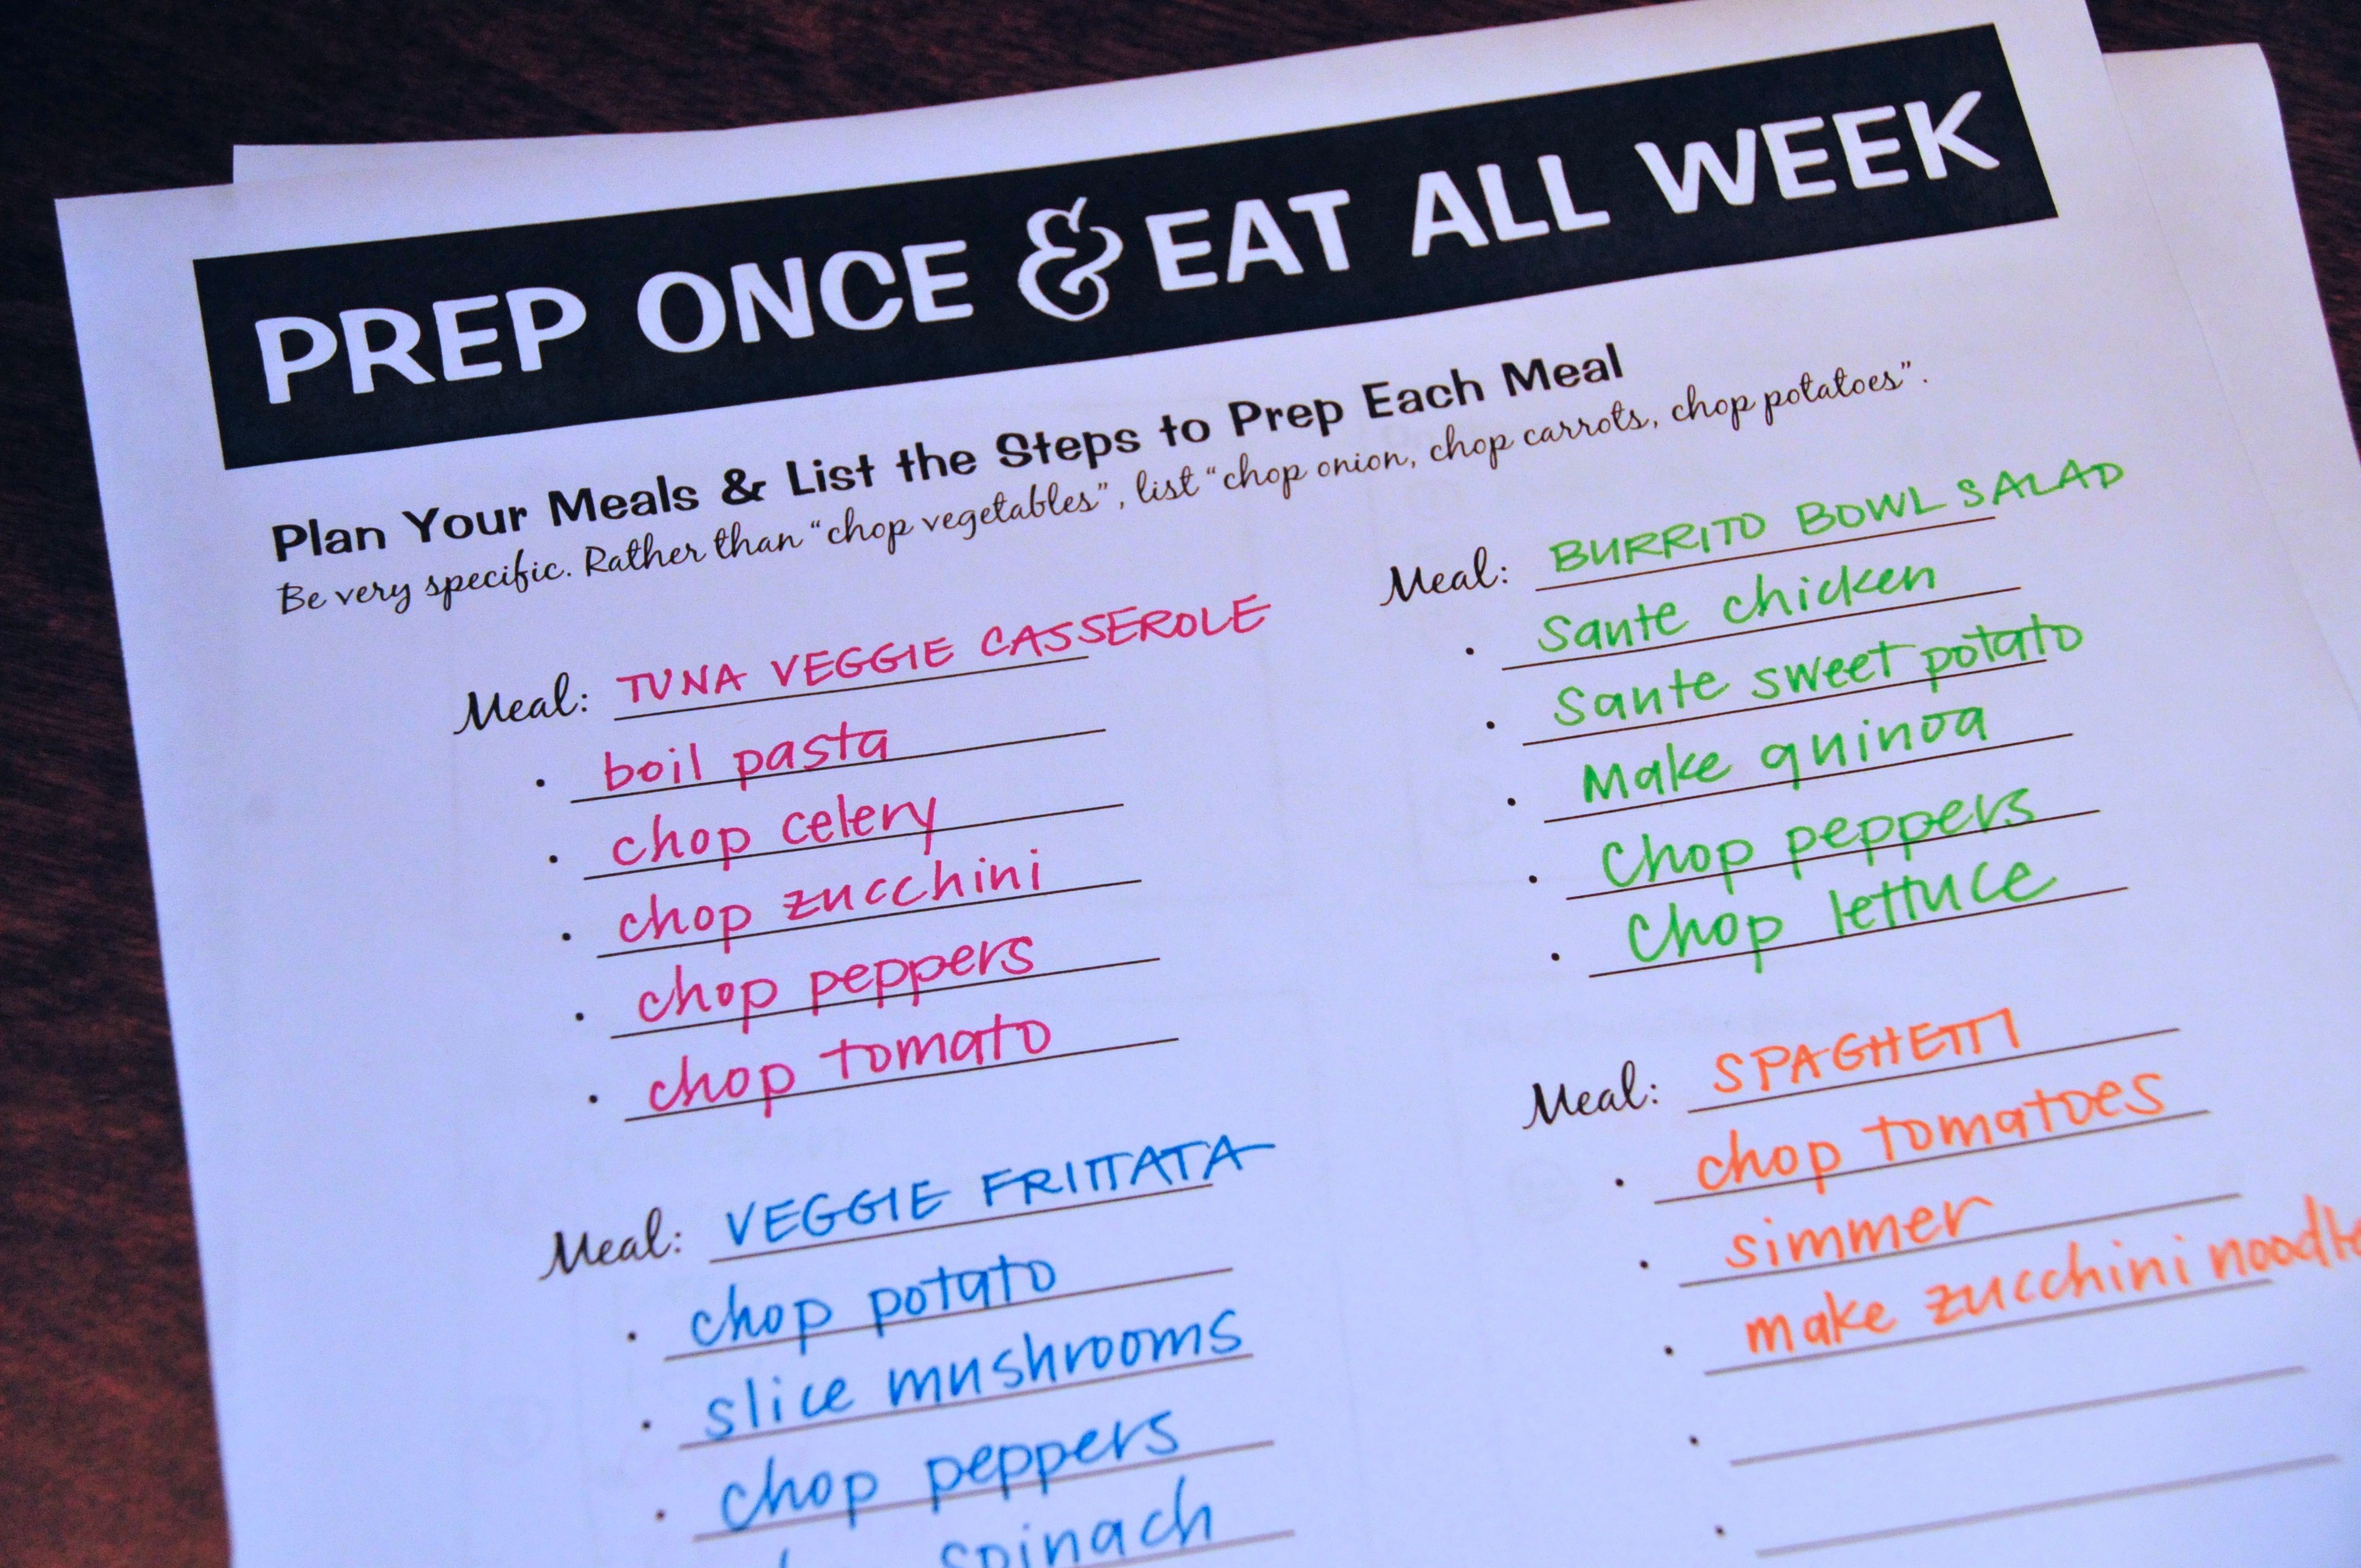 PREP ONCE & EAT ALL WEEK
Plan Your Meals & List the Steps to Prep Each Meal
Be very specific. Rather than “chop vegetables”, list “chop onion, chop carrots, chop potatoes”.
Meal: TUNA VEGGIE CASSEROLE
• boil pasta
• chop celery
• chop zucchini
• chop peppers
• chop tomato
Meal: VEGGIE FRITTATA
• chop potato
• slice mushrooms
• chop peppers
spinach
Meal: BURRITO BOWL SALAD
• Saute chicken
• Saute sweet potato
• Make quinoa
• Chop peppers
• Chop lettuce
Meal: SPAGHETTI
• chop tomatoes
• simmer
• make zucchini